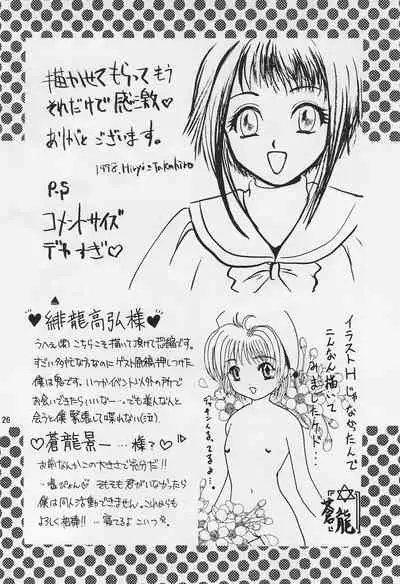 描かせてもらってもう
それだけで感激♡
ありがとございます。
1998. Hiryu=Takahiro
P.S
コメントサイズ
デカすぎ♡
♥緋龍高弘様♥
うへぇ(笑)こちらこそ描いて頂けて恐縮です。
すごい多忙な方なのにゲスト原稿押しつけた
僕は鬼です。いつかイベント以外の所で
お会いできたらいいなー。でも美人な人と
会うと僕 緊張して喋れない(泣)
♡蒼龍景一…様?♡
お前なんかこの大きさで充分だ!!
そもそも君がいなかったら
僕は同人活動できません。これからも
よろしく相棒!!…寝てるよこいつ
イラストHじゃなかったんで
こんなん描いて
みましたケド…
蒼龍
26